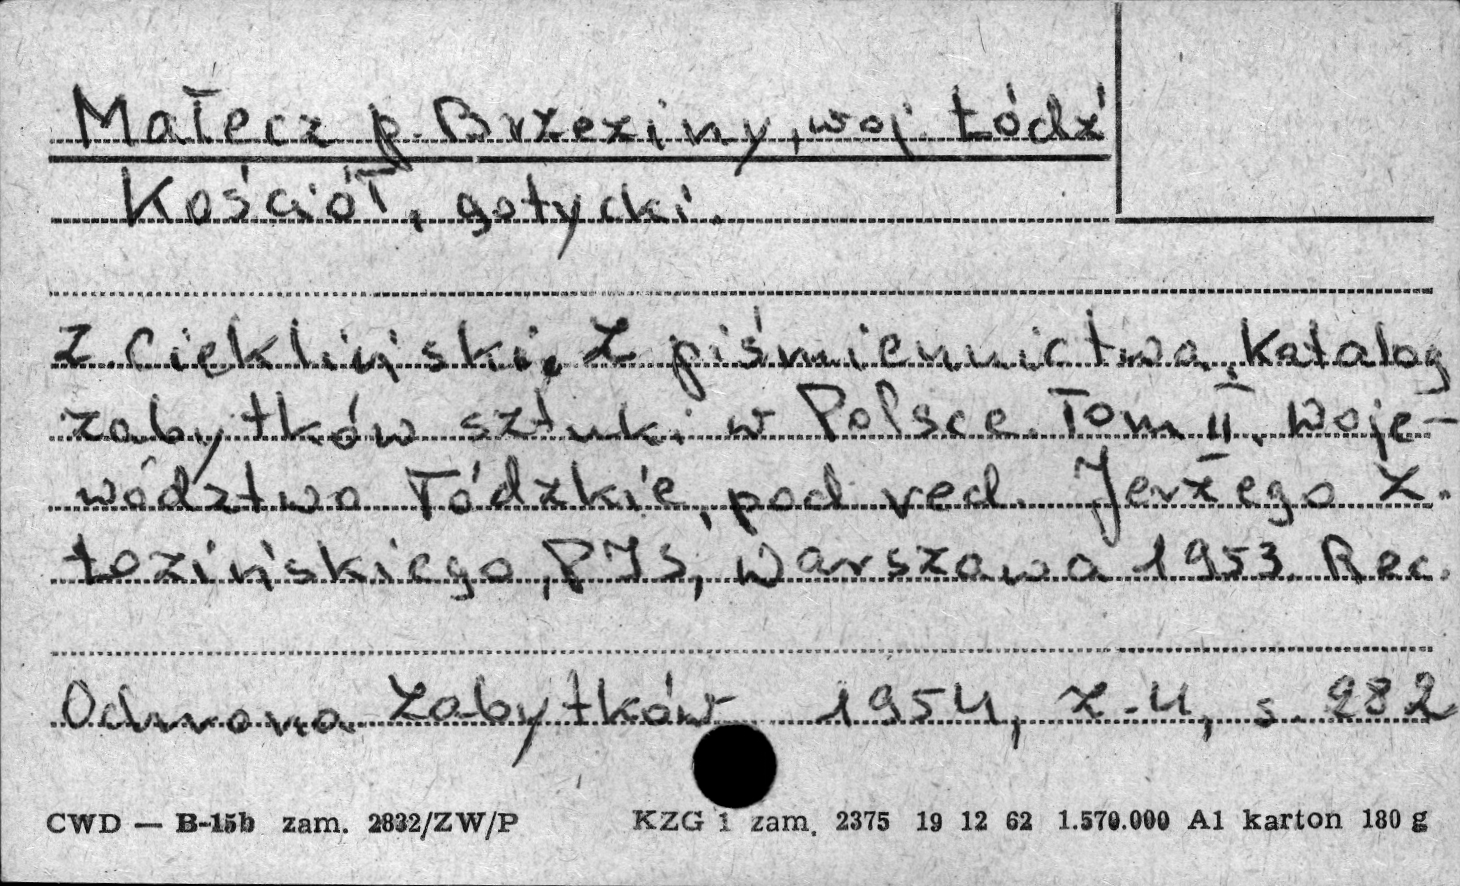 Małecz p. Brzeziny, woj. Łódź
Kościół, gotycki.
Z. Ciekliński, Z piśmiennictwa, Katalog
zabytków sztuki w Polsce. Tom II. Woje-
wództwo Łódzkie, pod red. Jerzego Z.
Łozińskiego, PIS, Warszawa 1953. Rec.
Ochrona Zabytków 1954, z. 4, s. 282
CWD — B-15b zam. 2832/ZW/P KZG 1 zam. 2375 19 12 62 1.570.000 A1 karton 180 g